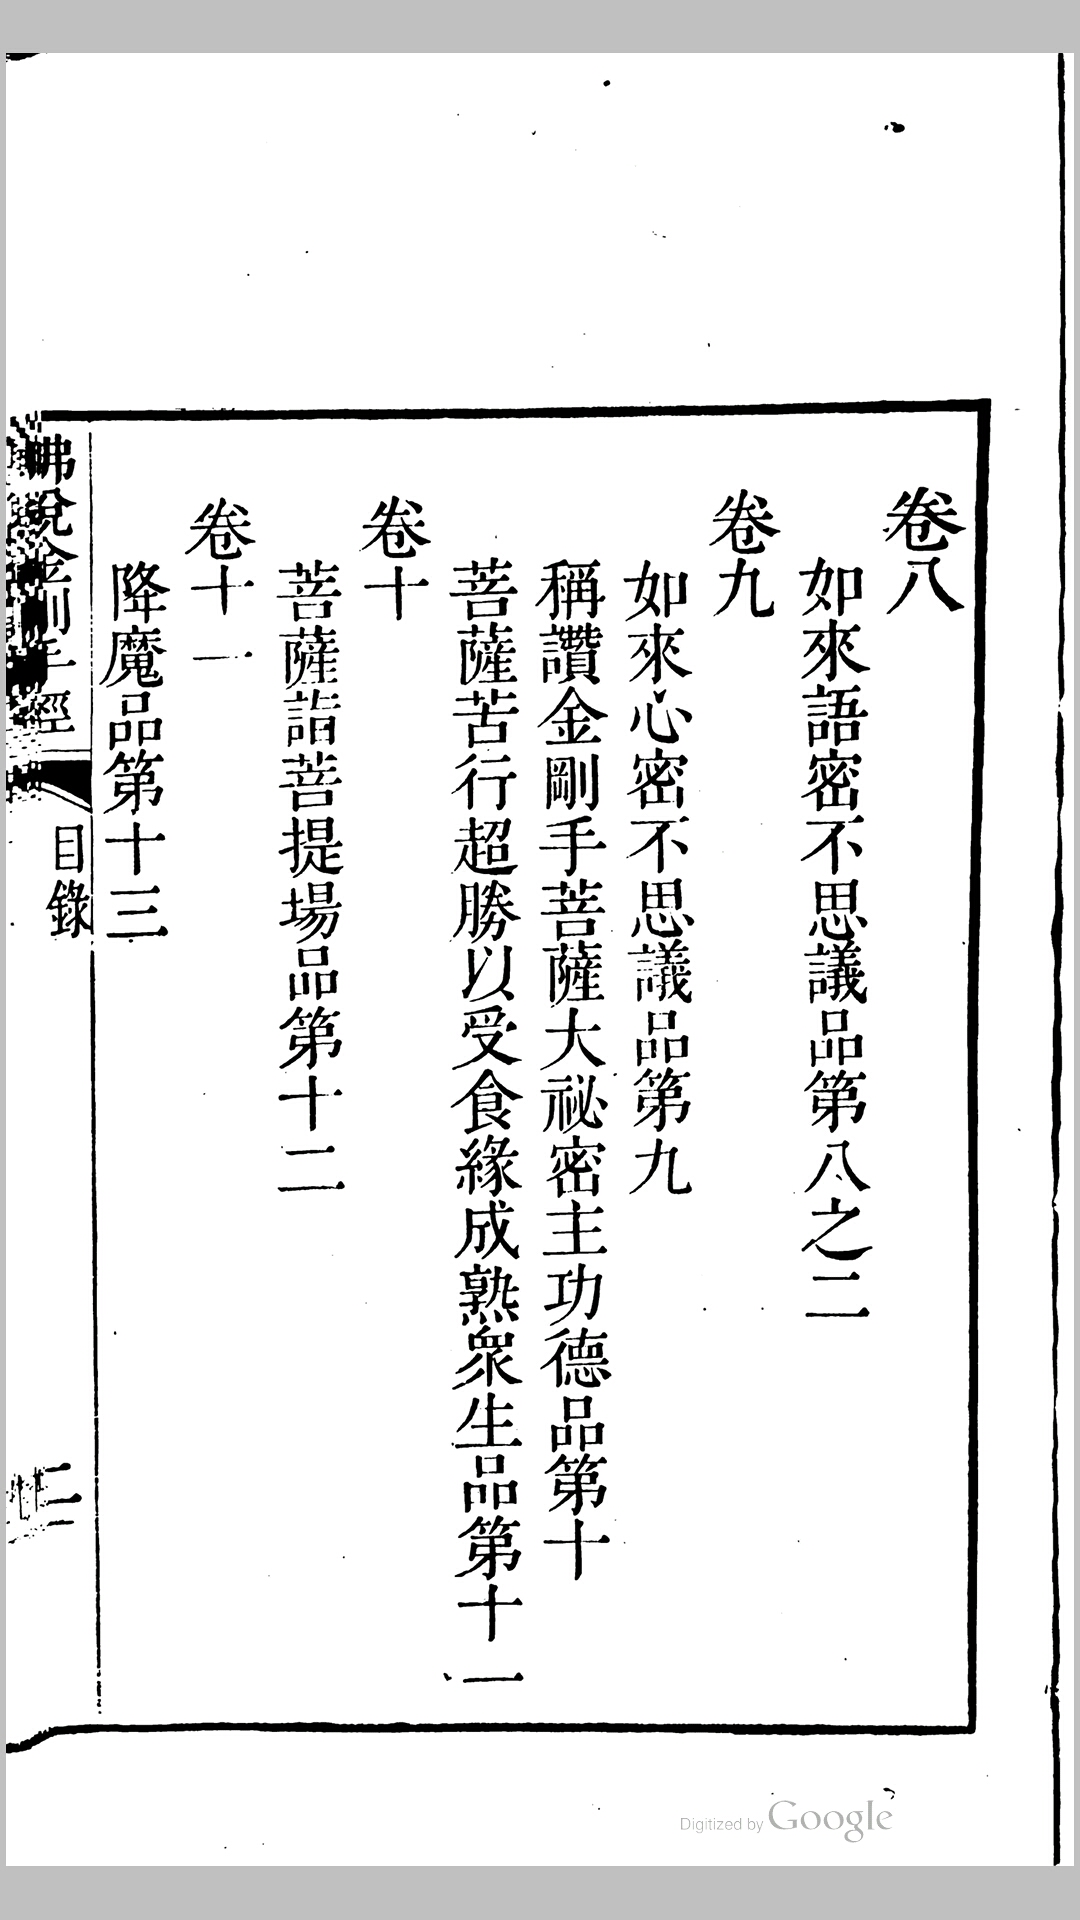 卷八
如來語密不思議品第八之二
卷九
如來心密不思議品第九
稱讚金剛手菩薩大祕密主功德品第十
菩薩苦行超勝以受食緣成熟衆生品第十一
卷十
菩薩詣菩提場品第十二
卷十一
降魔品第十三
佛說金剛手經
目錄
二
Digitized by Google